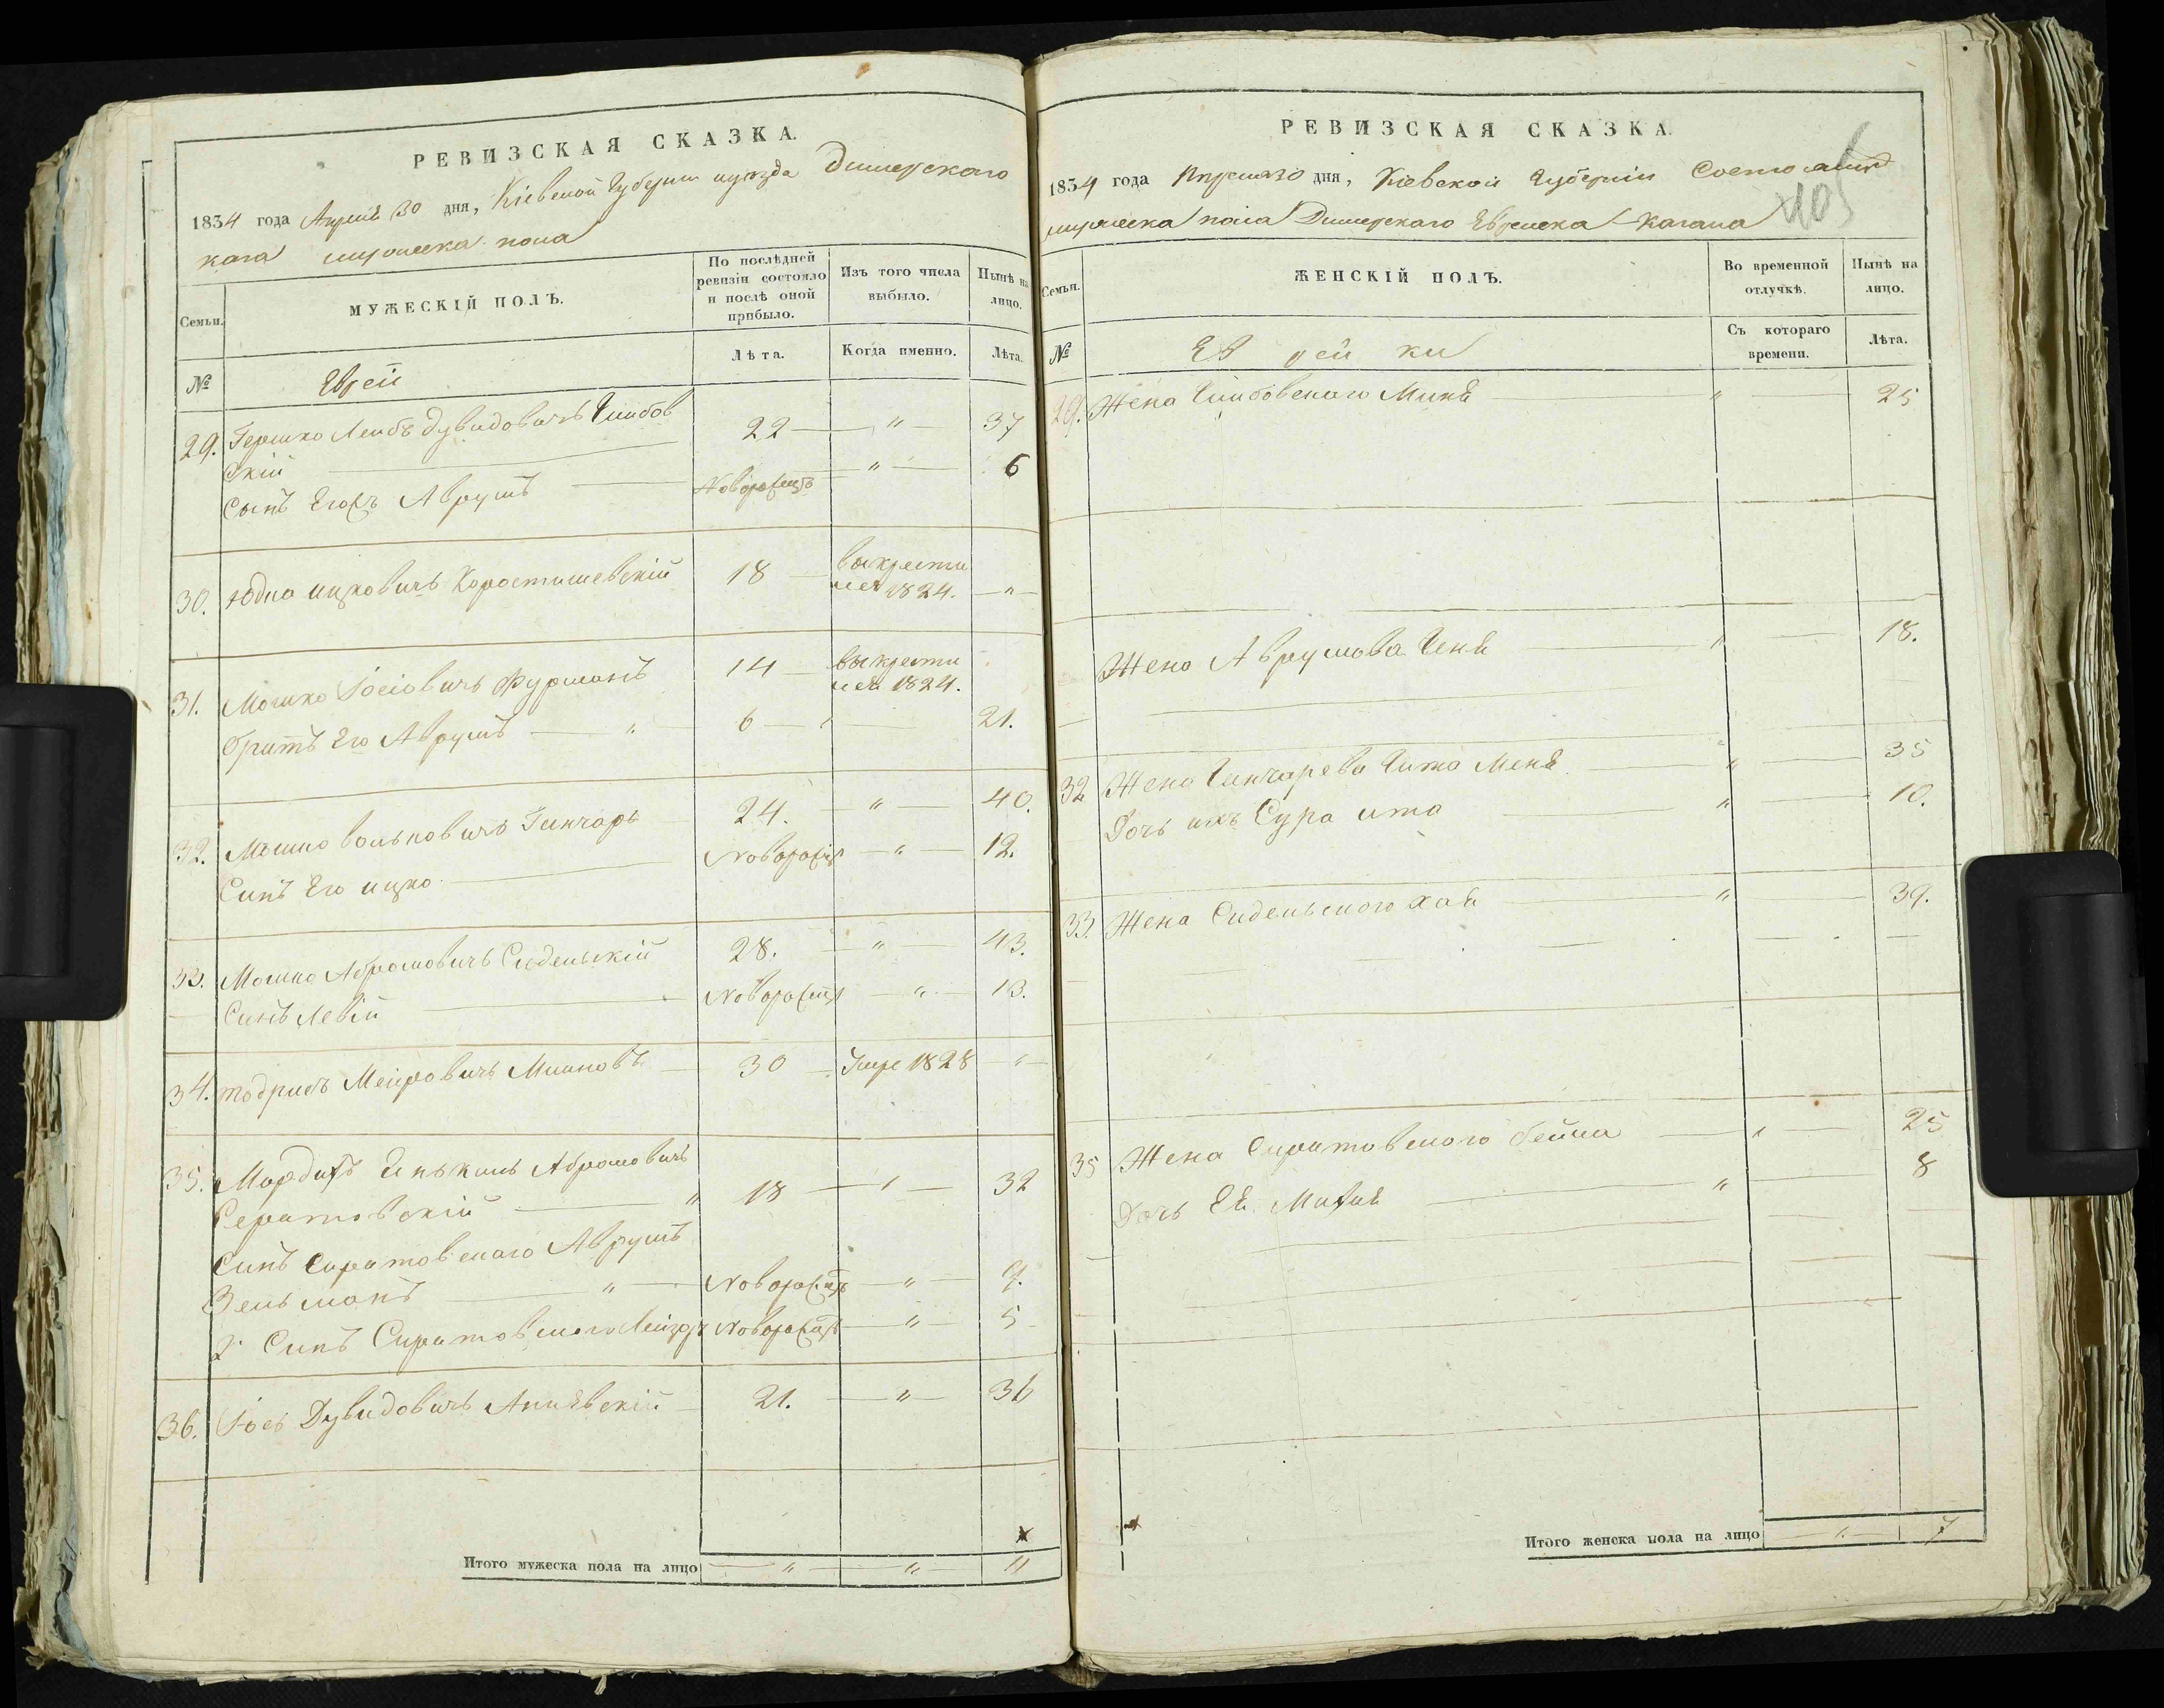 РЕВИЗСКАЯ СКАЗКА.
1834 года Апреля 30 дня, Кіевской Губерніи уѣзда Димерского
кага мужеска пола
Семьи.
МУЖЕСКІЙ ПОЛЪ.
По послѣдней ревизіи состояло и послѣ оной прибыло.
Изъ того числа выбыло.
Нынѣ на лицо.
№
Еврей
Лѣта.
Когда именно.
Лѣта.
29. Гершко Лейбъ Дувидовичъ 22 " 37
скій
Сынъ Его Аврумъ Новорож " 6
30. Юдко Ицковичъ Коростишевскій 18 выкрести
лся 1824. "
31. Мошко Іосіовичъ Фурманъ 14 выкрести
лся 1824.
братъ Его Аврумъ " 6 21.
32. Мошко Вольковичъ Гинчарь 24. " 40.
Синъ Его Ицко Новорож " 12.
33. Мошко Абрамовичъ Сиденьскій 28. " 43.
Синъ Левій Новорож " 13.
34. Тодрисъ Меіровичъ 30 Умре 1828 "
35. Мордухъ Абрамовичъ
Сератовскій " 18 " 32
Синъ Сиратовскаго Аврумъ
Зельманъ " Новорож " 9.
2й Синъ Сиратовского Лейзоръ Новорож " 5
36. Іось Дувидовичъ 21. " 36
Итого мужеска пола на лицо " " 11
РЕВИЗСКАЯ СКАЗКА.
1834 года Апреля 30 дня, Кіевской Губерніи
мужеска пола Димерскаго Евреска Кагала
405
Семьи.
ЖЕНСКІЙ ПОЛЪ.
Во временной отлучкѣ.
Нынѣ на лицо.
№
Еврейки
Съ котораго времени.
Лѣта.
29. Жена " 25
Жена Аврумова " 18.
32 Жена Гинчарева Меня " 35
Дочь ихъ Сура Ита " 10.
33. Жена Сиденьского Хая " 39.
35 Жена Сиратовского Бейла " 25
Дочь Ея " 8
Итого женска пола на лицо " 7